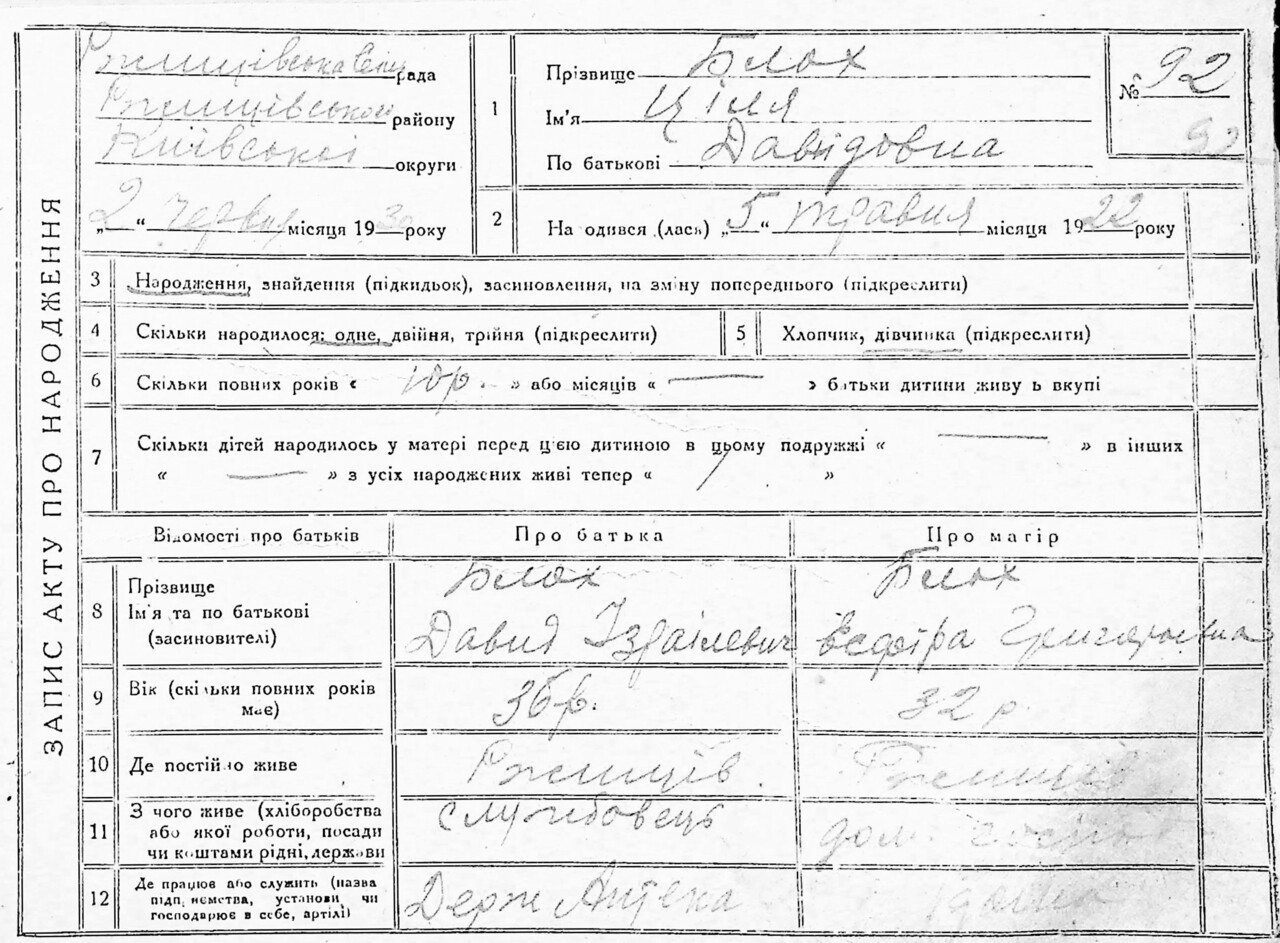 ЗАПИС АКТУ ПРО НАРОДЖЕННЯ
Ржищівська сел рада
Ржищівського району
Київської округи
„ 2 “ червня місяця 19 30 року
1
Прізвище Блох
Ім'я Ціля
По батькові Давидовна
№ 92
2
На одився (лась) „ 5 “ травня місяця 19 22 року
3 Народження, знайдення (підкидьок), засиновлення, на зміну попереднього (підкреслити)
4 Скільки народилося: одне, двійня, трійня (підкреслити)
5 Хлопчик, дівчинка (підкреслити)
6 Скільки повних років « 10р. » або місяців « — » батьки дитини живу ь вкупі
7 Скільки дітей народилось у матері перед цією дитиною в цьому подружжі « — » в інших
« — » з усіх народжених живі тепер « 1 »
Відомості про батьків Про батька Про матір
8 Прізвище
Ім'я та по батькові
(засиновителі)
Блох
Давид Ізраілевич
Блох
Григоровна
9 Вік (скільки повних років
має)
36р. 32 р
10 Де постійно живе Ржищів. Ржищів
11 З чого живе (хліборобства
або якої роботи, посади
чи коштами рідні, держови
службовець
дом. госп
12 Де працює або служить (назва
підп иємства, установи чи
господарює в себе, артілі)
Держ Аптека